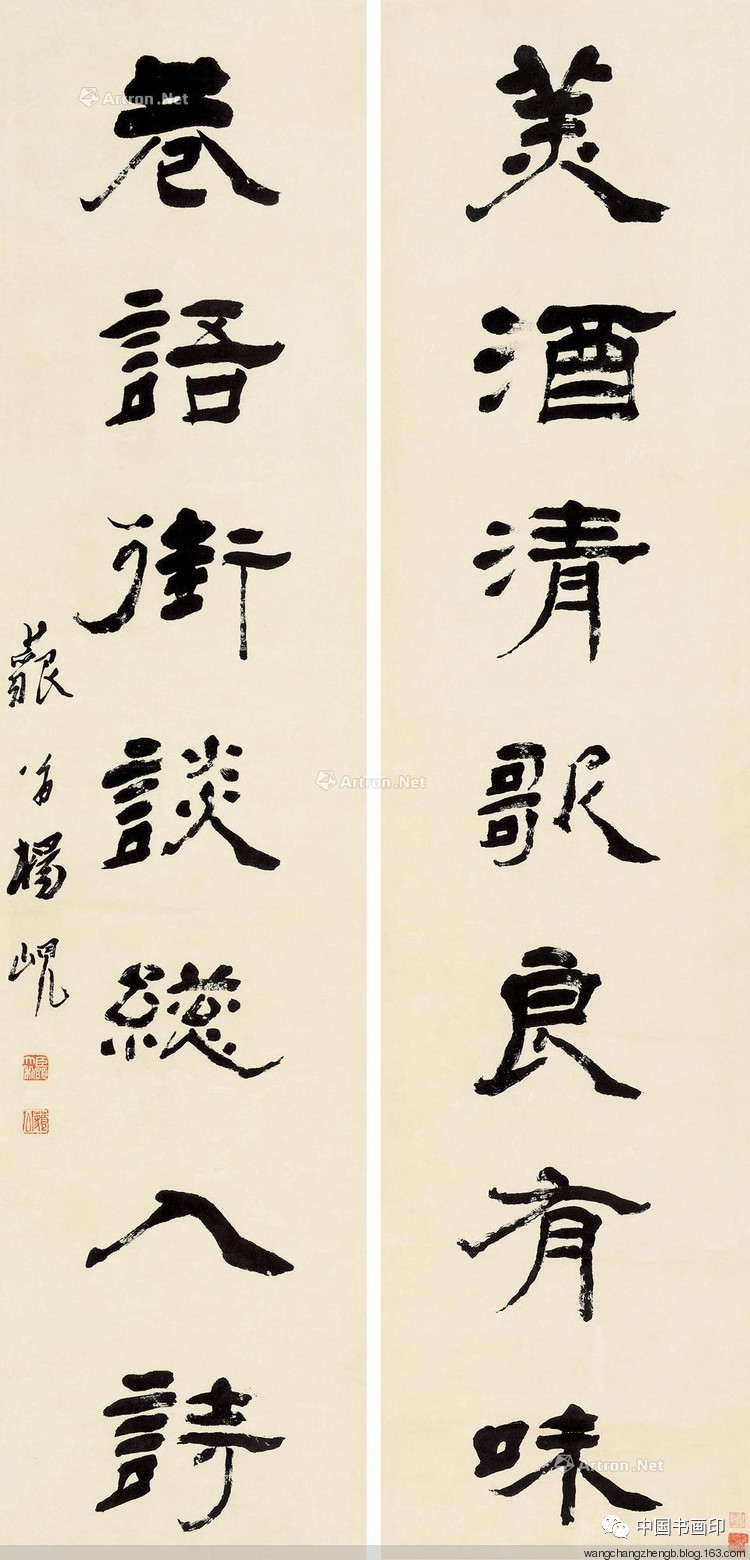 美酒清歌良有味
巷語街談總入詩
藐翁楊峴
Artron.Net
Artron.Net
Artron.Net
中国书画印
wangchangzhengb.blog.163.com